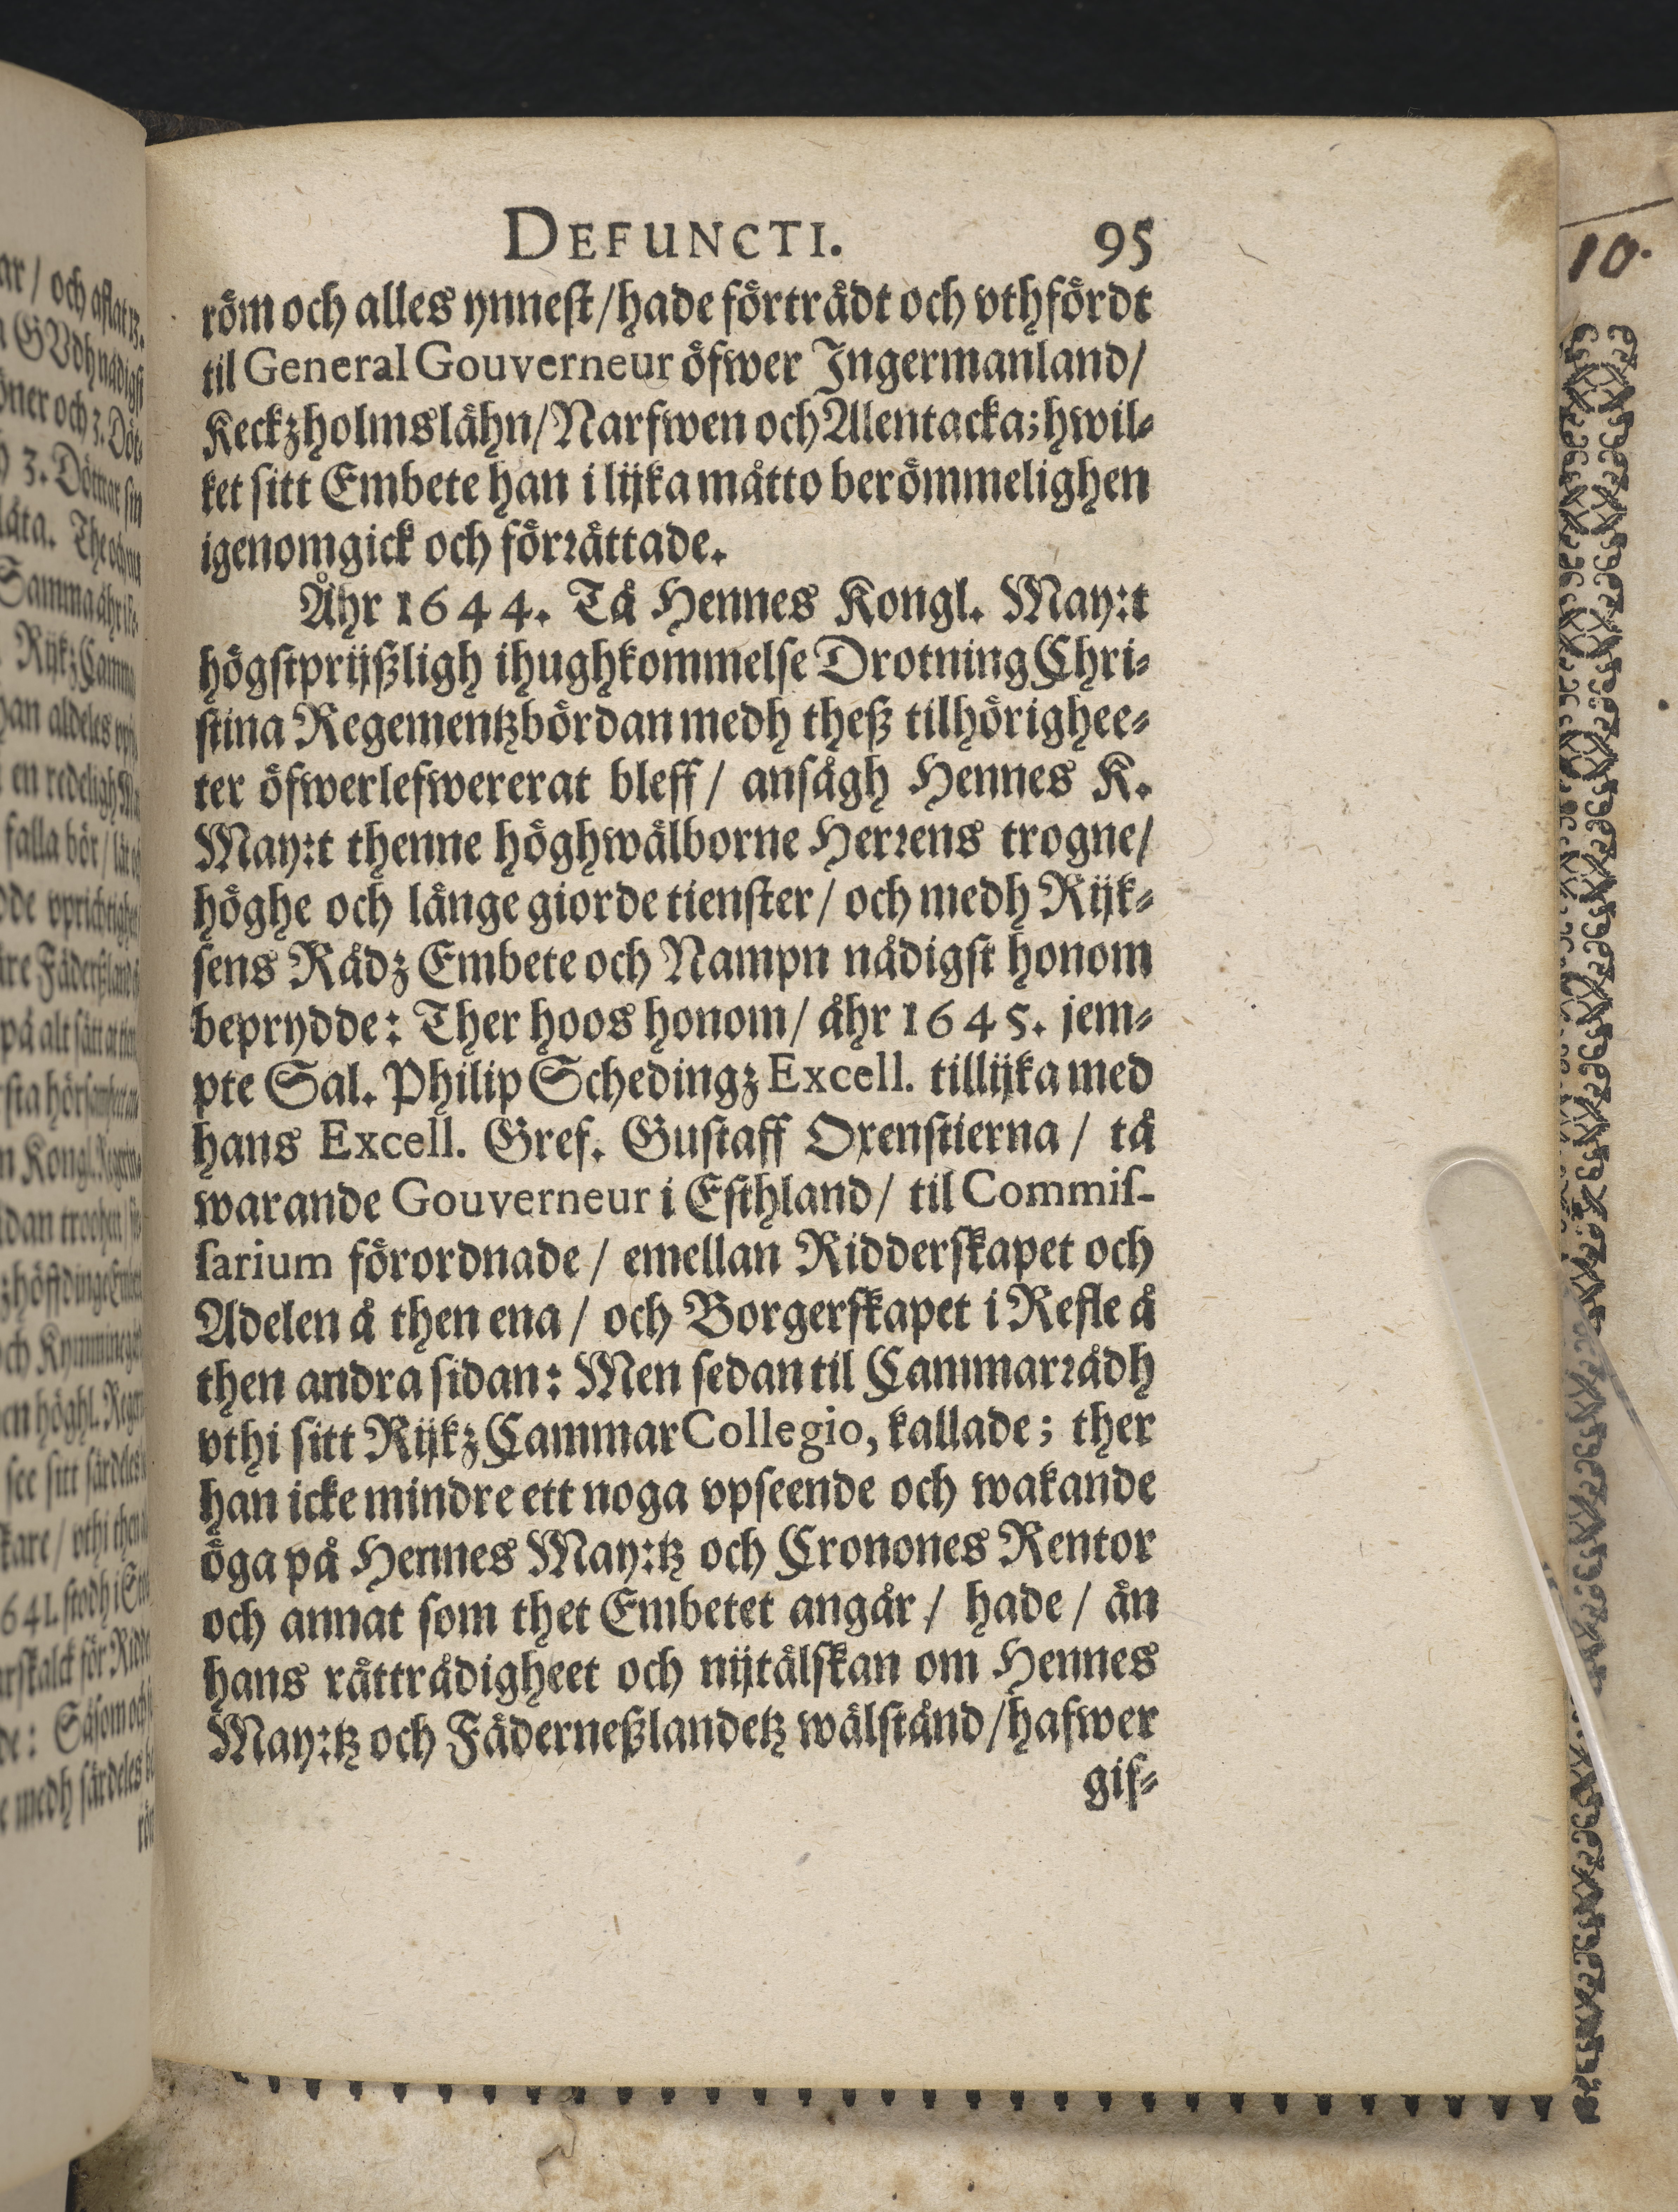 DEFUNCTI. 95
röm och alles ynnest/hade förträdt och vthfördt
til General Gouverneur öfwer Ingermanland/
Keckzholmslähn/Narfwen och Alentacka; hwil-
ket sitt Embete han i lijka måtto berömmelighen
igenomgick och förrättade.
Åhr 1644. Tå Hennes Kongl. May:t
högstprijßligh ihughkommelse Drotning Chri-
stina Regementzbördan medh theß tilhörighee-
ter öfwerlefwererat bleff/ ansågh Hennes K.
May:t thenne höghwälborne Herrens trogne/
höghe och länge giorde tienster/ och medh Rijk-
sens Rådz Embete och Nampn nådigst honom
beprydde: Ther hoos honom/ åhr 1645. jem-
pte Sal. Philip Schedingz Excell. tillijka med
hans Excell. Gref. Gustaff Oxenstierna/ tå
warande Gouverneur i Esthland/ til Commis-
sarium förordnade/ emellan Ridderskapet och
Adelen å then ena/ och Borgerskapet i Refle å
then andra sidan: Men sedan til Cammarrådh
vthi sitt Rijkz Cammar Collegio, kallade; ther
han icke mindre ett noga vpseende och wakande
öga på Hennes May:tz och Cronones Rentor
och annat som thet Embetet angår/ hade/ än
hans rättrådigheet och nijtälskan om Hennes
May:tz och Fäderneßlandetz wälstånd/hafwer
gif-
10.